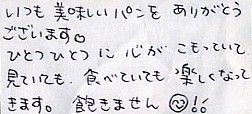 いつも美味しいパンを ありがとう
ございます。
ひとつひとつに心が こもっていて
見ていても、食べていても 楽しくなって
きます。 飽きません ☺!!